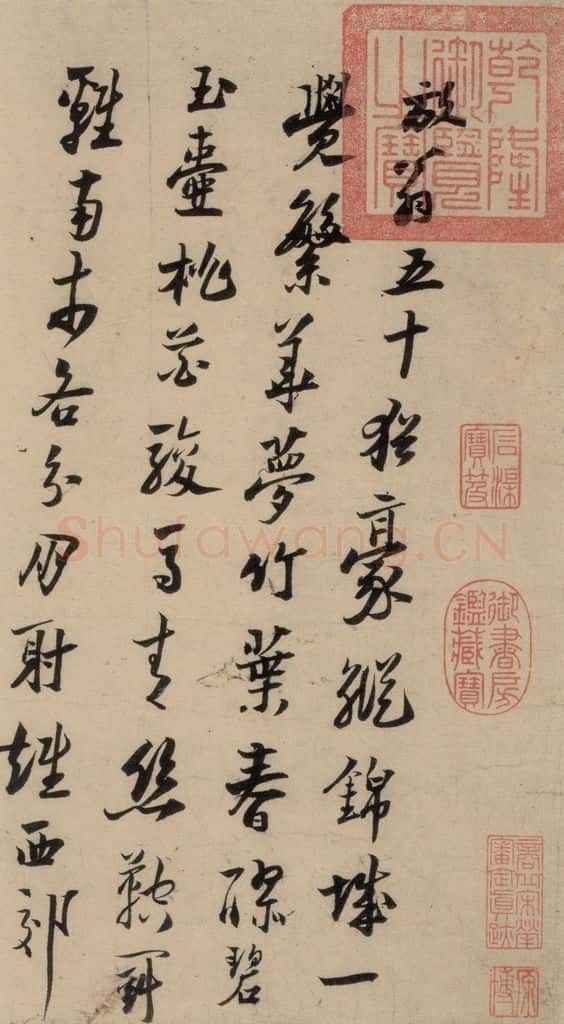 放翁五十猶豪縱錦城一
覺繁華夢竹葉春醪碧
玉壺桃花駿馬青絲鞚鬥
雞南市各分朋射雉西郊
乾隆
御覽
之寶
石渠
寶笈
御書房
鑑藏寶
商丘宋犖
審定真跡
Shufawang.CN